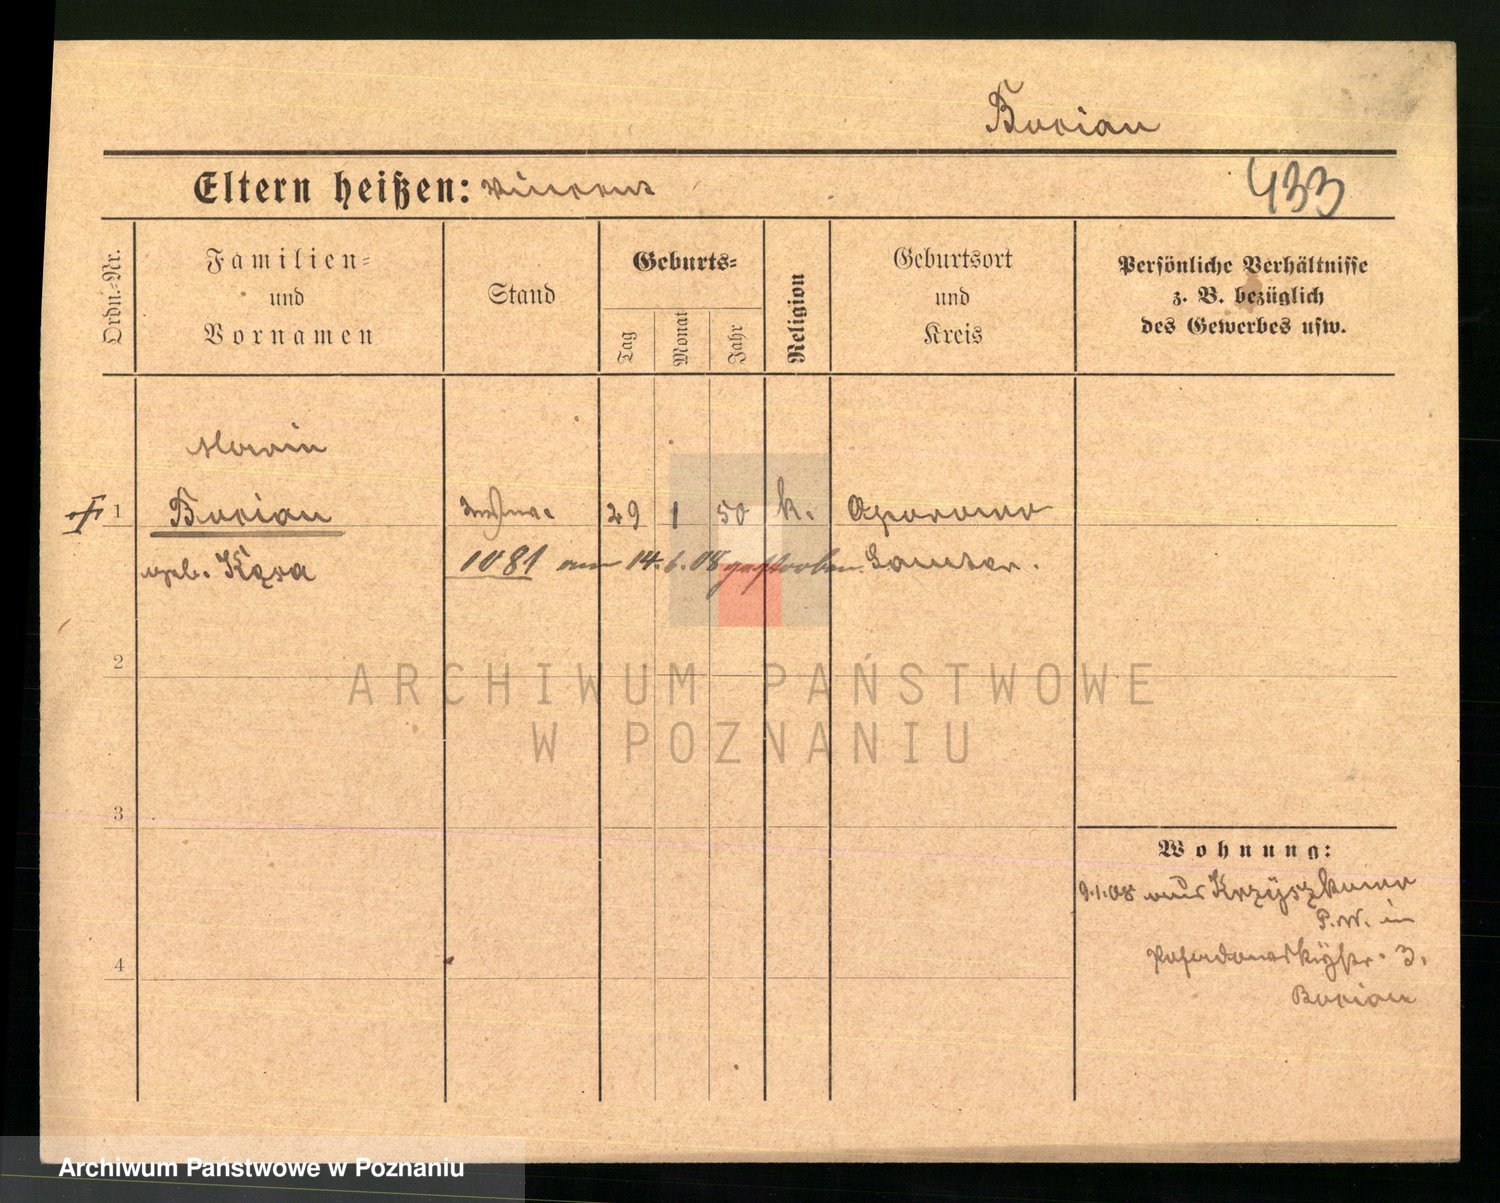 Burian
Eltern heißen: Vincent
433
Ordn.-Nr.
Familien-
und
Vornamen
Stand
Geburts-
Tag
Monat
Jahr
Religion
Geburtsort
und
Kreis
Persönliche Verhältnisse
z. B. bezüglich
des Gewerbes usw.
Marie
1 Burian 29 1 50 k.
geb. Kęsa 1081 am 14.6.08 gestorben Samter.
2
ARCHIWUM PAŃSTWOWE
W POZNANIU
3
Wohnung:
9.1.08 aus Krzyszkowo
P.W. in
3.
Burian
4
Archiwum Państwowe w Poznaniu